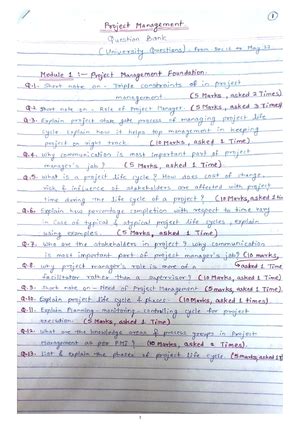 1
Project Management
Question Bank
(University Questions). From Dec 16 to May 22
Module 1 :- Project Management Foundation.
Q.1. Short note on - Triple constraints of in project
management (5 Marks, asked 2 Times)
Q.2 Short note on - Role of Project Manager. (5 Marks, asked 3 times)
Q.3. Explain project stage gate process of managing project life
cycle explain how it helps top management in keeping
project on right track. (10 Marks, asked 1 Time)
Q.4. Why communication is most important part of project
manager's job? (5 Marks, asked 1 Time)
Q.5. What is a project life cycle? How does cost of change,
risk & influence of stakeholders are affected with project
time during the life cycle of a project? (10 Marks, asked 1
Q.6. Explain how percentage completion with respect to time vary
in case of typical & atypical project life cycles, explain
using examples. (5 Marks, asked 1 Time)
Q.7. Who are the stakeholders in project? Why communication
is most important part of project manager's job? (10 marks,
asked 1 Time)
Q.8. Why project manager's role is more of a
facilitator rather than a supervisor? (10 Marks, asked 1 Time)
Q.9. Short note on - Need of Project Management (5 marks, asked 1 Time)
Q.10. Explain project life cycle & phases. (10 Marks, asked 1 times)
Q.11. Explain Planning - monitoring - controlling cycle for project
execution. (5 Marks, asked 1 Time)
Q.12. What are the knowledge areas & process groups in Project
Management as per PMI? (10 Marks, asked 2 Times).
Q.13. List & explain the phases of project life cycle (5 marks, asked 1
1